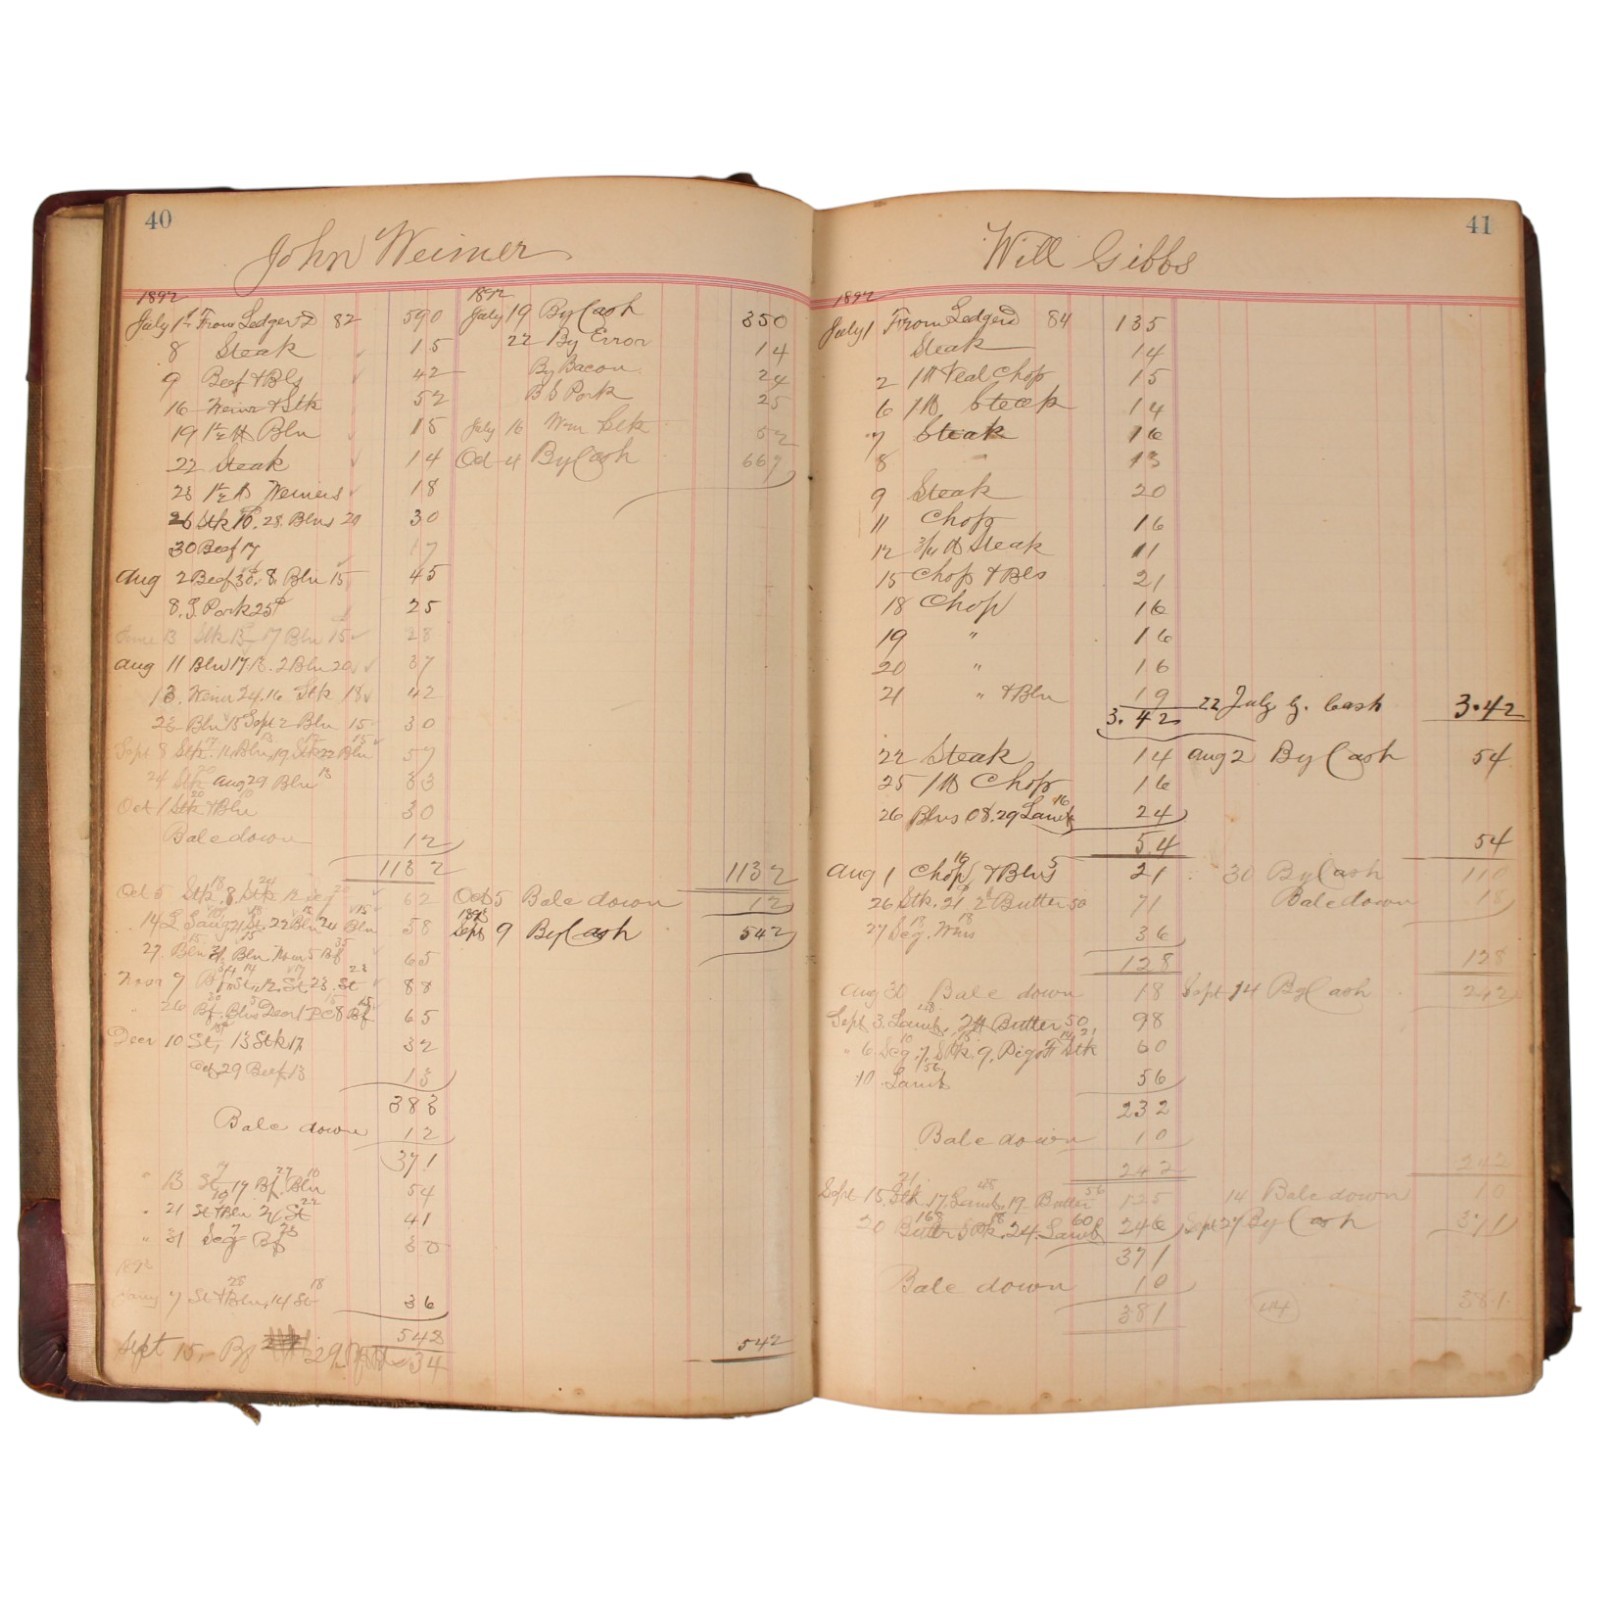 40
John Weimer
1892
July 1st From Ledger D 82 590
8 Steak 15
9 Beef & Bls 42
16 Weiner & Stk 52
19 1 1/2 # Bln 15
22 Steak 14
23 1 1/2 lb Weiners 18
26 Stk 10. 28. Blns 20 30
30 Beef 17 17
Aug 2 Beef 30. 8 Bln 15 45
8. Pork 25 25
13 Stk 13 17 Bln 15 28
Aug 11 Bln 17 2 Bln 20 37
13. Weiner 24. 16 Stk 18 42
23 Bln 15 Sept 2 Bln 15 30
Sept 8 Stk Bln 19 Stk 22 Bln 57
24 Stk Aug 29 Bln 33
Oct 1 Stk & Bln 30
Bale down 12
1132
Oct 5 Stk 8 Stk 62
14 21 St 22 Bln 24 Bln 58
27 Bln 31 Bln Nov 5 Bf 65
Nov 9 12. St 23. St 88
26 Bf. Blns Decr 1 8 Bf 65
Decr 10 St, 13 Stk 17 32
Oct 29 Beef 13 13
383
Bale down 12
371
" 13 St 17 Bf. Bln 54
" 21 St & Bln 24 St 41
" 31 Seg Bf 30
1892
7 St & Bln 14 St 36
542
Sept 15 Bf 29 34
1892
July 19 By Cash 350
22 By Error 14
By Bacon 24
By Pork 25
July 16 Wm Stk 52
Oct 4 By Cash 667
1132
Oct 5 Bale down 12
1893
Sept 9 By Cash 542
542
41
Will Gibbs
1892
July 1 From Ledger D 84 135
Steak 14
2 1 lb Veal Chop 15
6 1 lb Steak 14
7 Steak 16
8 " 13
9 Steak 20
11 Chop 16
12 3/4 lb Steak 11
15 Chop & Bls 21
18 Chop 16
19 " 16
20 " 16
21 " & Bln 19
3.42
22 July by Cash 3.42
22 Steak 14
Aug 2 By Cash 54
25 1 lb Chop 16
26 Blns 08. 29 Lamb 16 24
54
54
Aug 1 Chop 16 & Blns 5 21
30 By Cash 110
26 Stk. 21 2 # Butter 50 71
Bale down 18
27 Seg. Wns 36
128
128
Aug 30 Bale down 18
Sept 14 By Cash 242
Sept 3. Lamb, 2 # Butter 50 98
" 6 Seg. 7. Stk 9. Stk 60
10 Lamb 56 56
232
Bale down 10
242
242
Sept 15 Stk 17. Lamb, 19 Butter 125
14 Bale down 10
20 Butter Stk. 24. Lamb 60 246
Sept 27 By Cash 371
371
Bale down 10
381
44
381